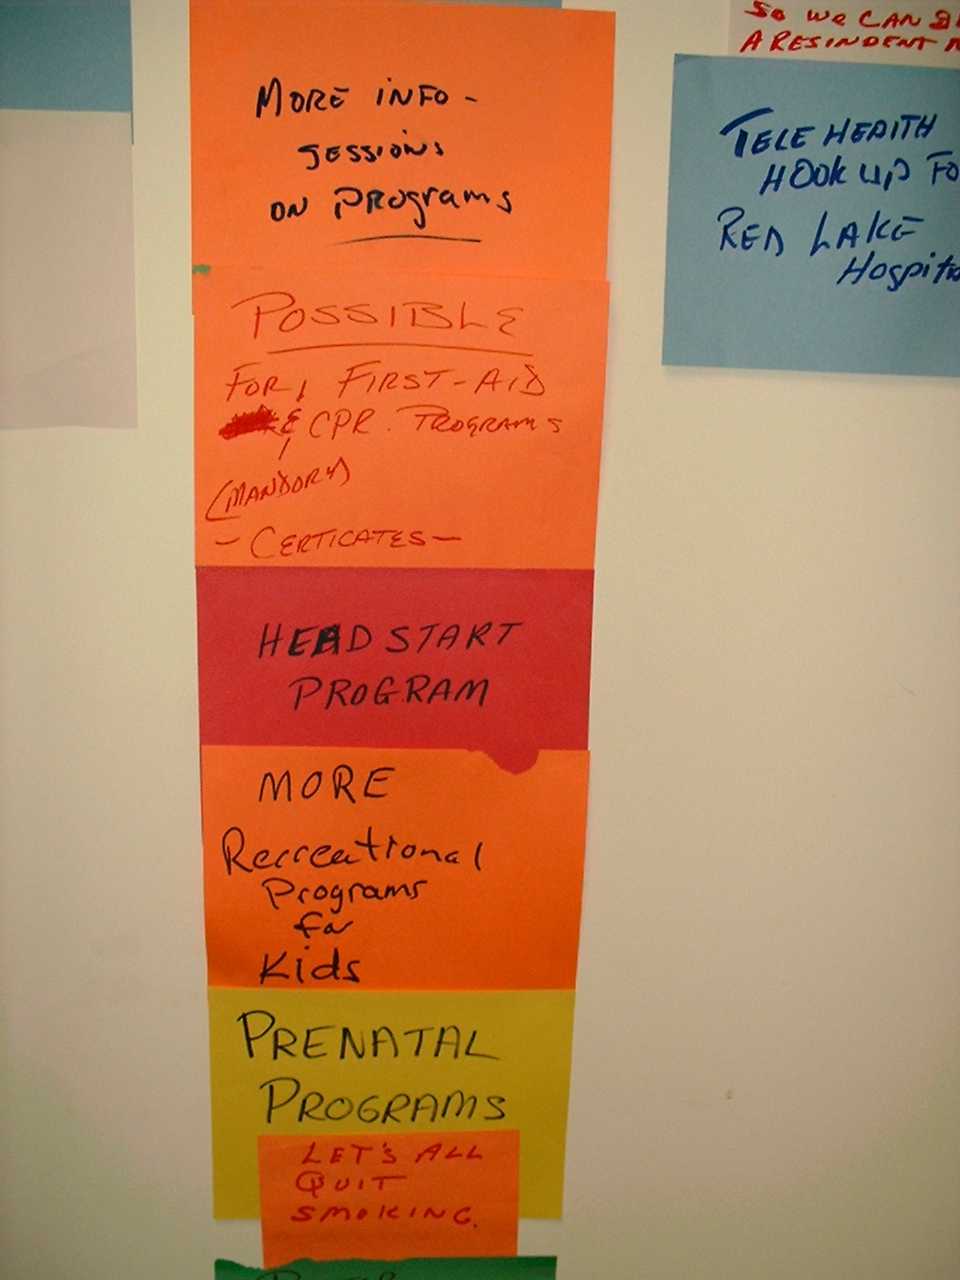 MORE INFO-
SESSIONS
ON PROGRAMS
POSSIBLE
FOR FIRST-AID
& CPR. PROGRAMS
(MANDORY)
- CERTICATES -
HEAD START
PROGRAM
MORE
Recreational
Programs
for
Kids
PRENATAL
PROGRAMS
LET'S ALL
QUIT
SMOKING.
SO WE CAN
A RESINDENT
TELE HEALTH
HOOK UP FO
RED LAKE
Hospit